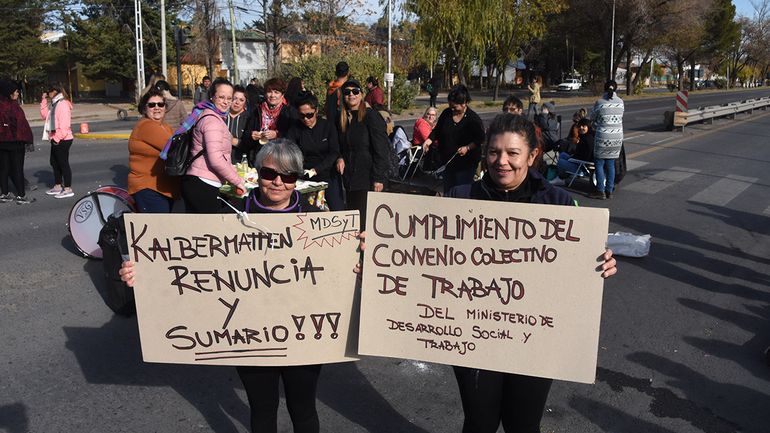 KALBERMATTEN
RENUNCIA
Y
SUMARIO!!!
MDSYT
CUMPLIMIENTO DEL
CONVENIO COLECTIVO
DE TRABAJO
DEL MINISTERIO DE
DESARROLLO SOCIAL Y
TRABAJO